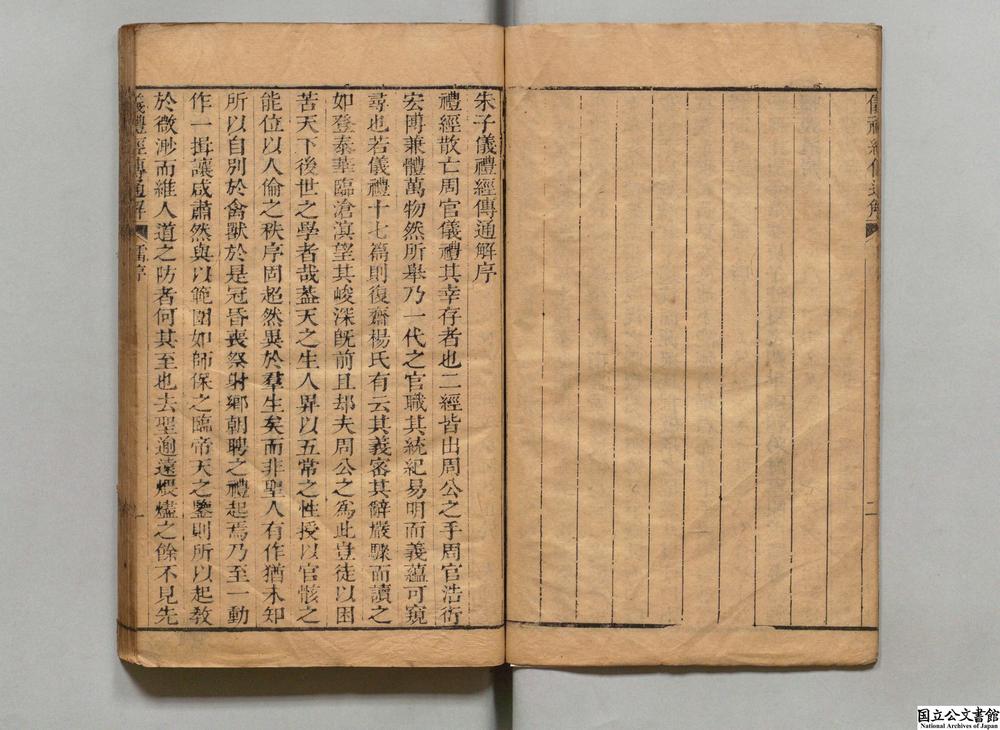 儀禮經傳通解
二
朱子儀禮經傳通解序
禮經散亡周官儀禮其幸存者也二經皆出周公之手周官浩衍
宏博兼體萬物然所舉乃一代之官職其統紀易明而義蘊可窺
尋也若儀禮十七篇則復齋楊氏有云其義密其辭嚴驟而讀之
如登泰華臨滄溟望其峻深旣前且却夫周公之爲此豈徒以困
苦天下後世之學者哉葢天之生人畀以五常之性授以官骸之
能位以人倫之秩序固超然異於羣生矣而非聖人有作猶未知
所以自別於禽獸於是冠昏喪祭射鄉朝聘之禮起焉乃至一動
作一揖讓咸肅然與以範圍如師保之臨帝天之鑒則所以起敎
於微渺而維人道之防者何其至也去聖逾遠煨燼之餘不見先
儀禮經傳通解
序
一
国立公文書館
National Archives of Japan